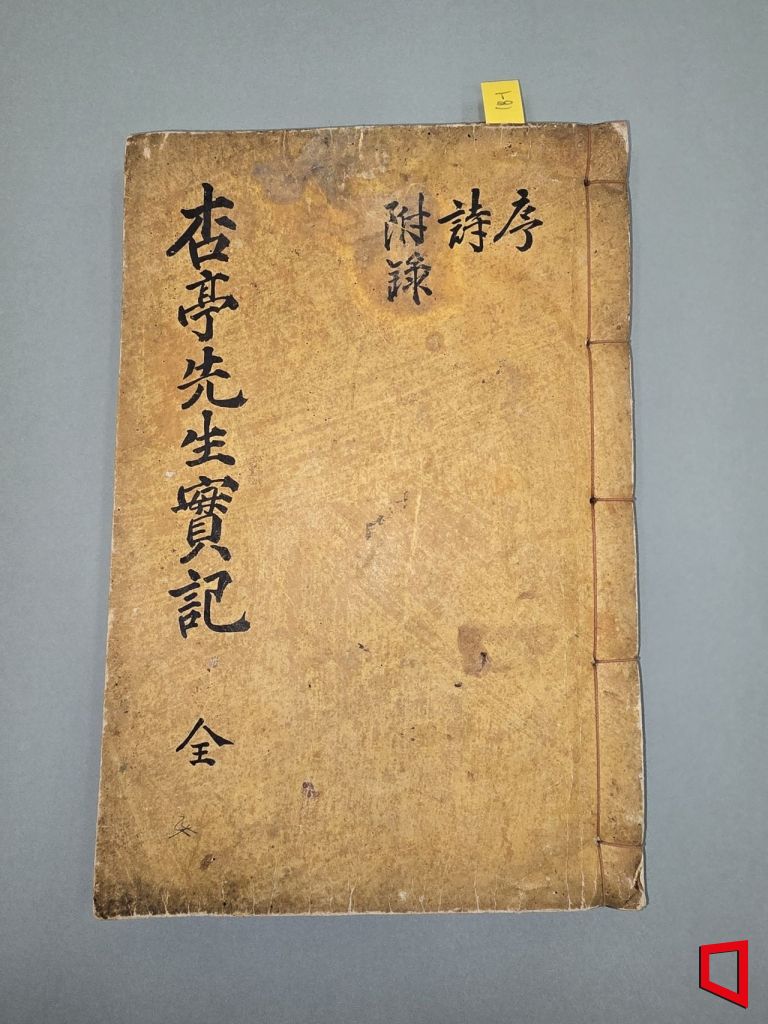 序
詩
附錄
杏亭先生實記 全